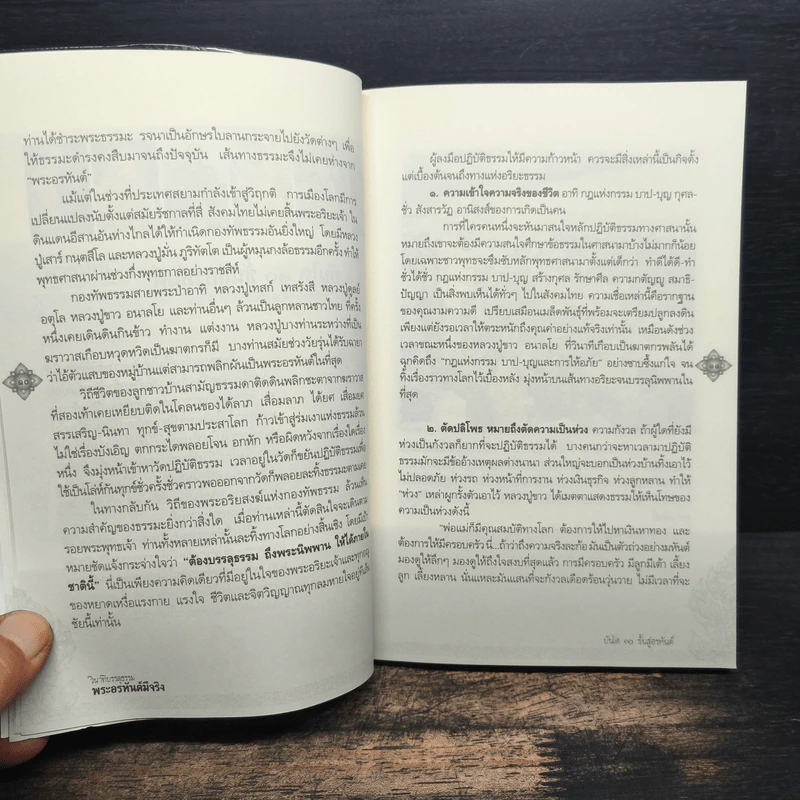 ท่านได้ชำระพระธรรมะ รจนาเป็นอักษรใบลานกระจายไปยังวัดต่างๆ เพื่อ
ให้ธรรมะดำรงคงสืบมาจนถึงปัจจุบัน เส้นทางธรรมะจึงไม่เคยห่างจาก
"พระอรหันต์"
แม้แต่ในช่วงที่ประเทศสยามกำลังเข้าสู่วิกฤติ การเมืองโลกมีการ
เปลี่ยนแปลงนับตั้งแต่สมัยรัชกาลที่สี่ สังคมไทยไม่เคยสิ้นพระอริยะเจ้า ใน
ดินแดนอีสานอันห่างไกลได้ให้กำเนิดกองทัพธรรมอันยิ่งใหญ่ โดยมีหลวง
ปู่เสาร์ กนฺตสีโล และหลวงปู่มั่น ภูริทัตโต เป็นผู้หมุนกงล้อธรรมอีกครั้ง ทำให้
พุทธศาสนาผ่านช่วงกึ่งพุทธกาลอย่างราชสีห์
กองทัพธรรมสายพระป่าอาทิ หลวงปู่เทสก์ เทสรังสี หลวงปู่ดูลย์
อตุโล หลวงปู่ขาว อนาลโย และท่านอื่นๆ ล้วนเป็นลูกหลานชาวไทย ที่ครั้ง
หนึ่งเคยเดินดินกินข้าว ทำงาน แต่งงาน หลวงปู่บางท่านระหว่างที่เป็น
ฆราวาสเกือบหวุดหวิดเป็นฆาตกรก็มี บางท่านสมัยช่วงวัยรุ่นได้รับฉายา
ว่าไอ้ตัวแสบของหมู่บ้านแต่สามารถพลิกผันเป็นพระอรหันต์ในที่สุด
วิถีชีวิตของลูกชาวบ้านสามัญธรรมดาติดดินพลิกชะตาจากฆราวาส
ที่สองเท้าเคยเหยียบติดในโคลนของได้ลาภ เสื่อมลาภ ได้ยศ เสื่อมยศ
สรรเสริญ-นินทา ทุกข์-สุขตามประสาโลก ก้าวเข้าสู่ร่มเงาแห่งธรรมล้วน
ไม่ใช่เรื่องบังเอิญ ตกกระไดพลอยโจน อกหัก หรือผิดหวังจากเรื่องใดเรื่อง
หนึ่ง จึงมุ่งหน้าเข้าหาวัดปฏิบัติธรรม เวลาอยู่ในวัดก็ขยันปฏิบัติธรรมเพื่อ
ใช้เป็นโล่ห์กันทุกข์ชั่วครั้งชั่วคราวพอออกจากวัดก็พลอยละทิ้งธรรมะตามเคย
ในทางกลับกัน วิถีของพระอริยสงฆ์แห่งกองทัพธรรม ล้วนเห็น
ความสำคัญของธรรมะยิ่งกว่าสิ่งใด เมื่อท่านเหล่านี้ตัดสินใจจะเดินตาม
รอยพระพุทธเจ้า ท่านทั้งหลายเหล่านั้นละทิ้งทางโลกอย่างสิ้นเชิง โดยมีเป้า
หมายชัดแจ้งกระจ่างใจว่า "ต้องบรรลุธรรม ถึงพระนิพพาน ให้ได้ภายใน
ชาตินี้" นี่เป็นเพียงความคิดเดียวที่มีอยู่ในใจของพระอริยะเจ้าและทุกเม็ด
ของหยาดเหงื่อแรงกาย แรงใจ ชีวิตและจิตวิญญาณทุกลมหายใจอยู่ที่เส้น
ชัยนี้เท่านั้น
วินาทีบรรลุธรรม
พระอรหันต์มีจริง
ผู้ลงมือปฏิบัติธรรมให้มีความก้าวหน้า ควรจะมีสิ่งเหล่านี้เป็นกิจตั้ง
แต่เบื้องต้นจนถึงทางแห่งอริยะธรรม
๑. ความเข้าใจความจริงของชีวิต อาทิ กฎแห่งกรรม บาป-บุญ กุศล-
ชั่ว สังสารวัฏ อานิสงส์ของการเกิดเป็นคน
การที่ใครคนหนึ่งจะหันมาสนใจหลักปฏิบัติธรรมทางศาสนานั้น
หมายถึงเขาจะต้องมีความสนใจศึกษาข้อธรรมในศาสนามาบ้างไม่มากก็น้อย
โดยเฉพาะชาวพุทธจะซึมซับหลักพุทธศาสนามาตั้งแต่เด็กว่า ทำดีได้ดี-ทำ
ชั่วได้ชั่ว กฎแห่งกรรม บาป-บุญ สร้างกุศล รักษาศีล ความกตัญญู สมาธิ-
ปัญญา เป็นสิ่งพบเห็นได้ทั่วๆ ไปในสังคมไทย ความเชื่อเหล่านี้คือรากฐาน
ของคุณงามความดี เปรียบเสมือนเมล็ดพันธุ์ที่พร้อมจะเตรียมปลูกลงดิน
เพียงแต่ยังรอเวลาให้ตระหนักถึงคุณค่าอย่างแท้จริงเท่านั้น เหมือนดังช่วง
เวลาขณะหนึ่งของหลวงปู่ขาว อนาลโย ที่วินาทีเกือบเป็นฆาตกรพลันได้
ฉุกคิดถึง "กฎแห่งกรรม บาป-บุญและการให้อภัย" อย่างซาบซึ้งแก่ใจ จน
ทิ้งเรื่องราวทางโลกไว้เบื้องหลัง มุ่งหน้าบนเส้นทางอริยะจนบรรลุนิพพานใน
ที่สุด
๒. ตัดปลิโพธ หมายถึงตัดความเป็นห่วง ความกังวล ถ้าผู้ใดที่ยังมี
ห่วงเป็นกังวลก็ยากที่จะปฏิบัติธรรมได้ บางคนกว่าจะหาเวลามาปฏิบัติ
ธรรมมักจะมีข้ออ้างเหตุผลต่างนานา ส่วนใหญ่จะบอกเป็นห่วงบ้านทิ้งเอาไว้
ไม่ปลอดภัย ห่วงรถ ห่วงหน้าที่การงาน ห่วงเงินธุรกิจ ห่วงลูกหลาน ทำให้
"ห่วง" เหล่าผูกรั้งตัวเอาไว้ หลวงปู่ขาว ได้เมตตาแสดงธรรมให้เห็นโทษของ
ความเป็นห่วงดังนี้
"พ่อแม่ก็มีคุณสมบัติทางโลก ต้องการให้ไปหาเงินหาทอง และ
ต้องการให้มีครอบครัว นี่...ถ้าว่าถึงความจริงละก้อ มันเป็นตัวถ่วงอย่างมหันต์
มองดูให้ลึกๆ มองดูให้ถึงใจสงบที่สุดแล้ว การมีครอบครัว มีลูกมีเต้า เลี้ยง
ลูก เลี้ยงหลาน นั่นแหละมันแสนที่จะกังวลเดือดร้อนวุ่นวาย ไม่มีเวลาที่จะ
บันได ๓๐ ขั้นสู่อรหันต์